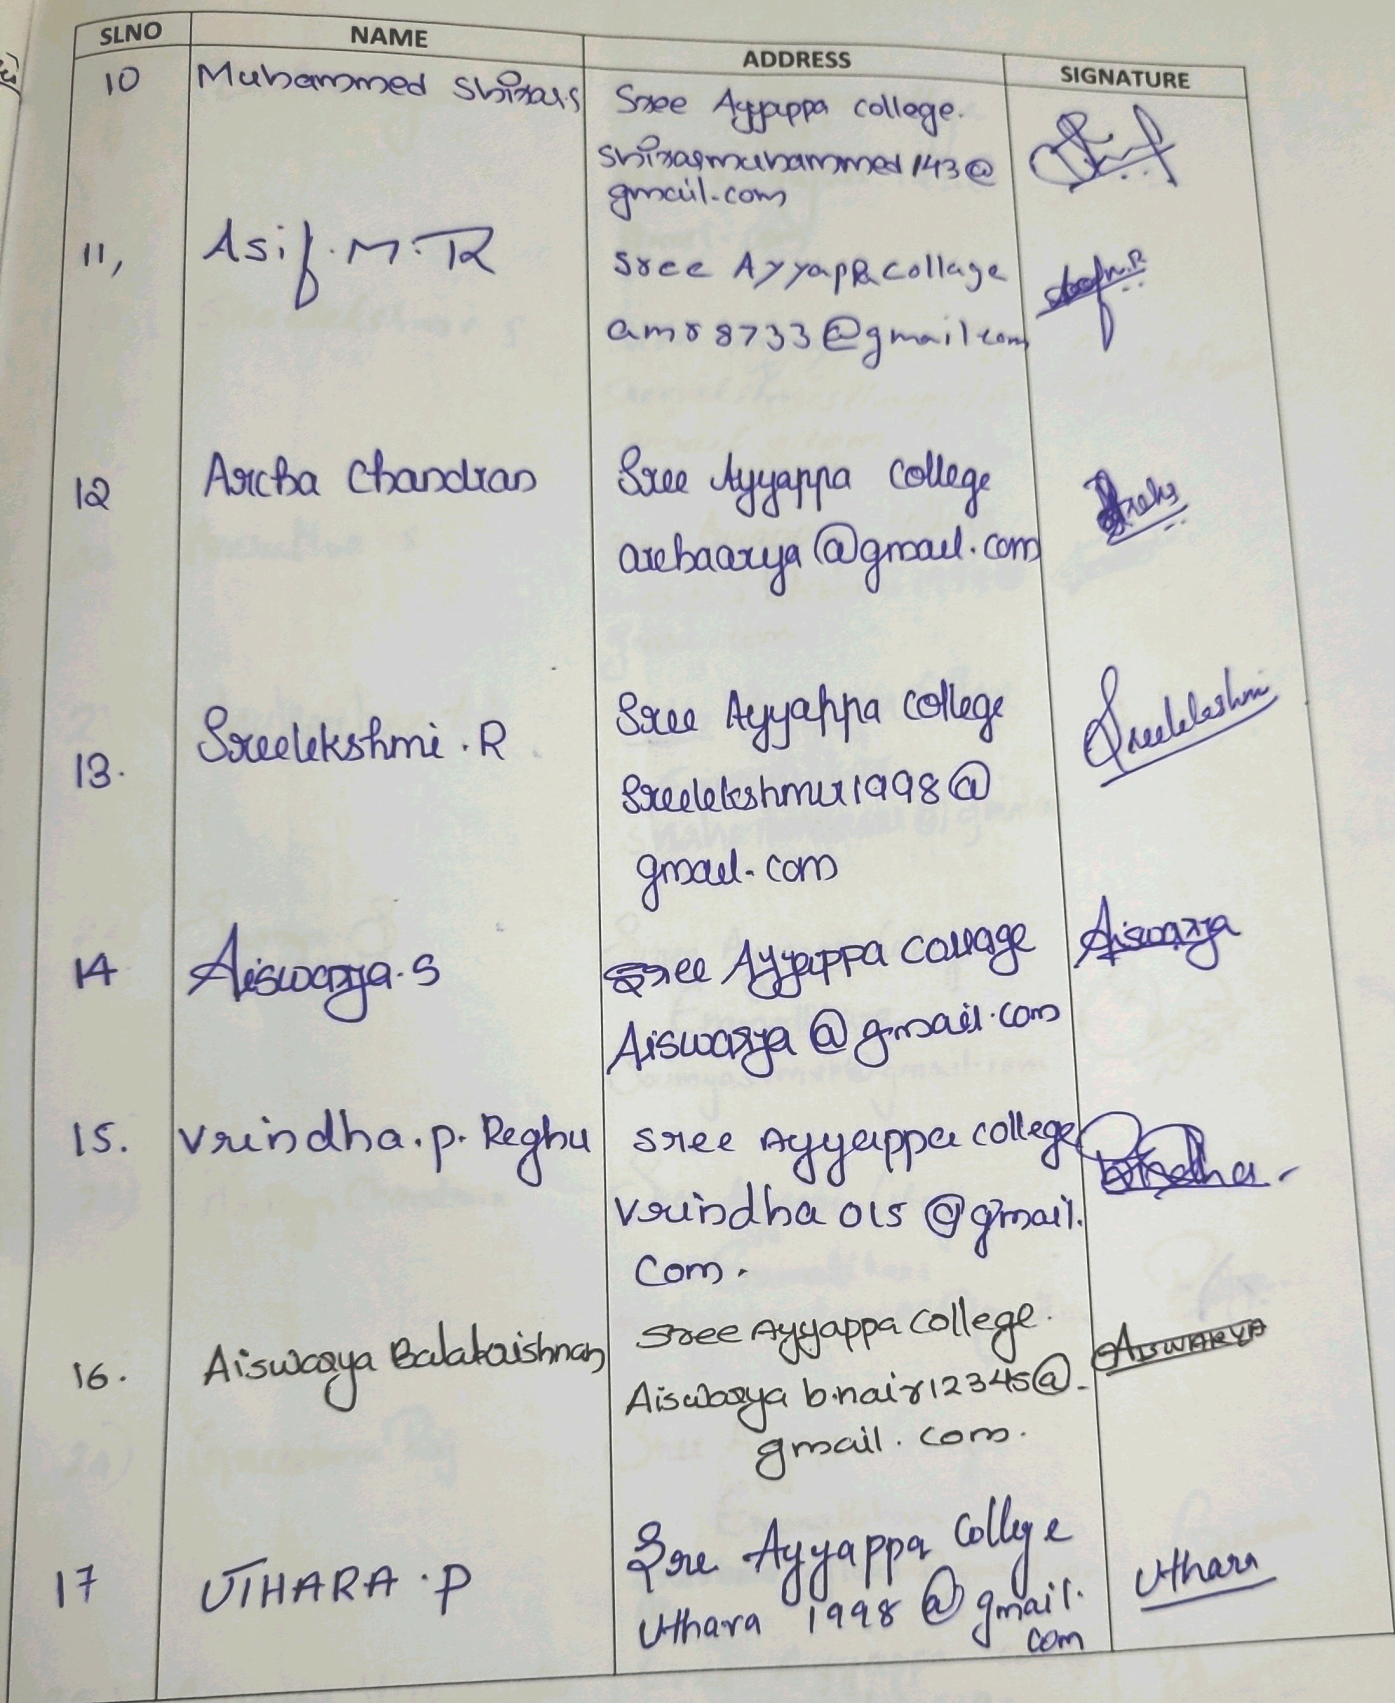 SLNO NAME ADDRESS SIGNATURE
10 Muhammed Shiraz.S Sree Ayyappa college.
shirazmuhammed143@
gmail.com
11, Asif.M.R Sree Ayyappa collage
amr8733@gmail.com
12 Archa Chandran Sree Ayyappa College
archaarya@gmail.com
13. Sreelekshmi.R Sree Ayyappa College Sreelekshmi
Sreelekshmir1998@
gmail.com
14 Aiswarya.S Sree Ayyappa collage Aiswarya
Aiswarya@gmail.com
15. Vrindha.p.Reghu Sree Ayyappa college
vrindha015@gmail.
com.
16. Aiswarya Balakrishnan Sree Ayyappa College. AISWARYA
Aiswarya b.nair12345@
gmail.com.
17 UTHARA.P Sree Ayyappa College Uthara
Uthara 1998@gmail.
com